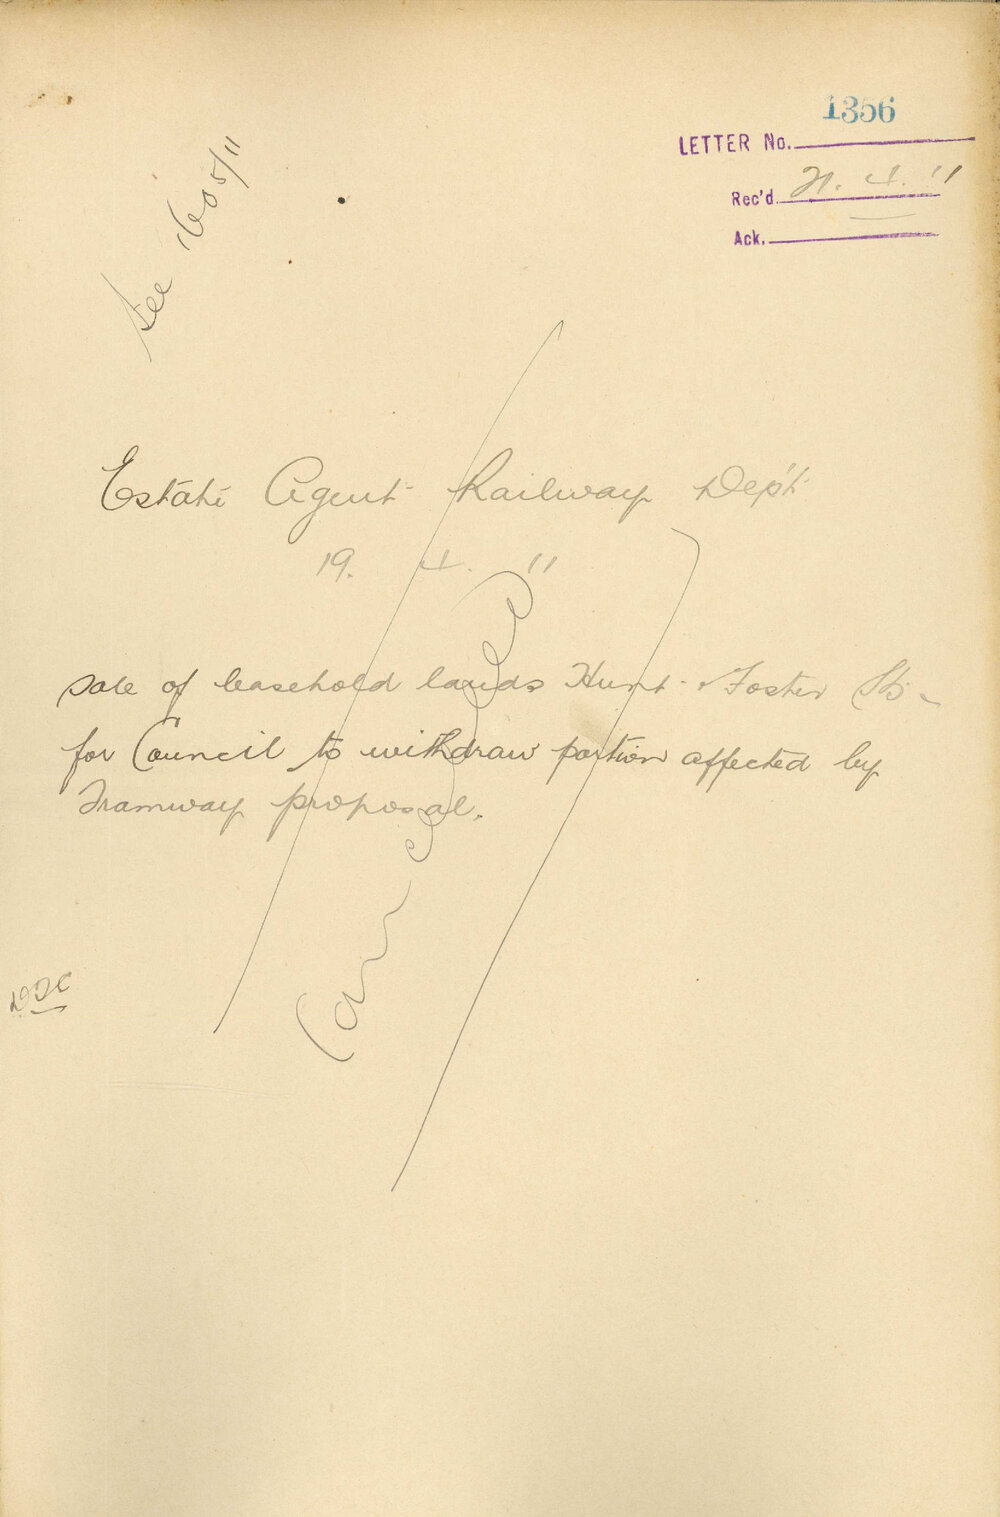 1356
LETTER No.
Rec'd 21. 4. 11
Ack.
See 1605/11
Estate Agent Railway Dep't
19. 4. 11
Sale of leasehold lands Hunt & Foster Sts -
for Council to withdraw portion affected by
Tramway proposal.
Cancelled